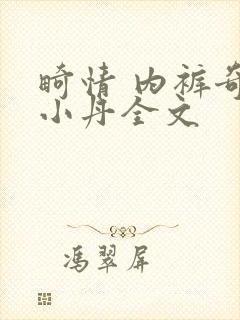 畸情 内裤奇
小丹全文
冯翠屏